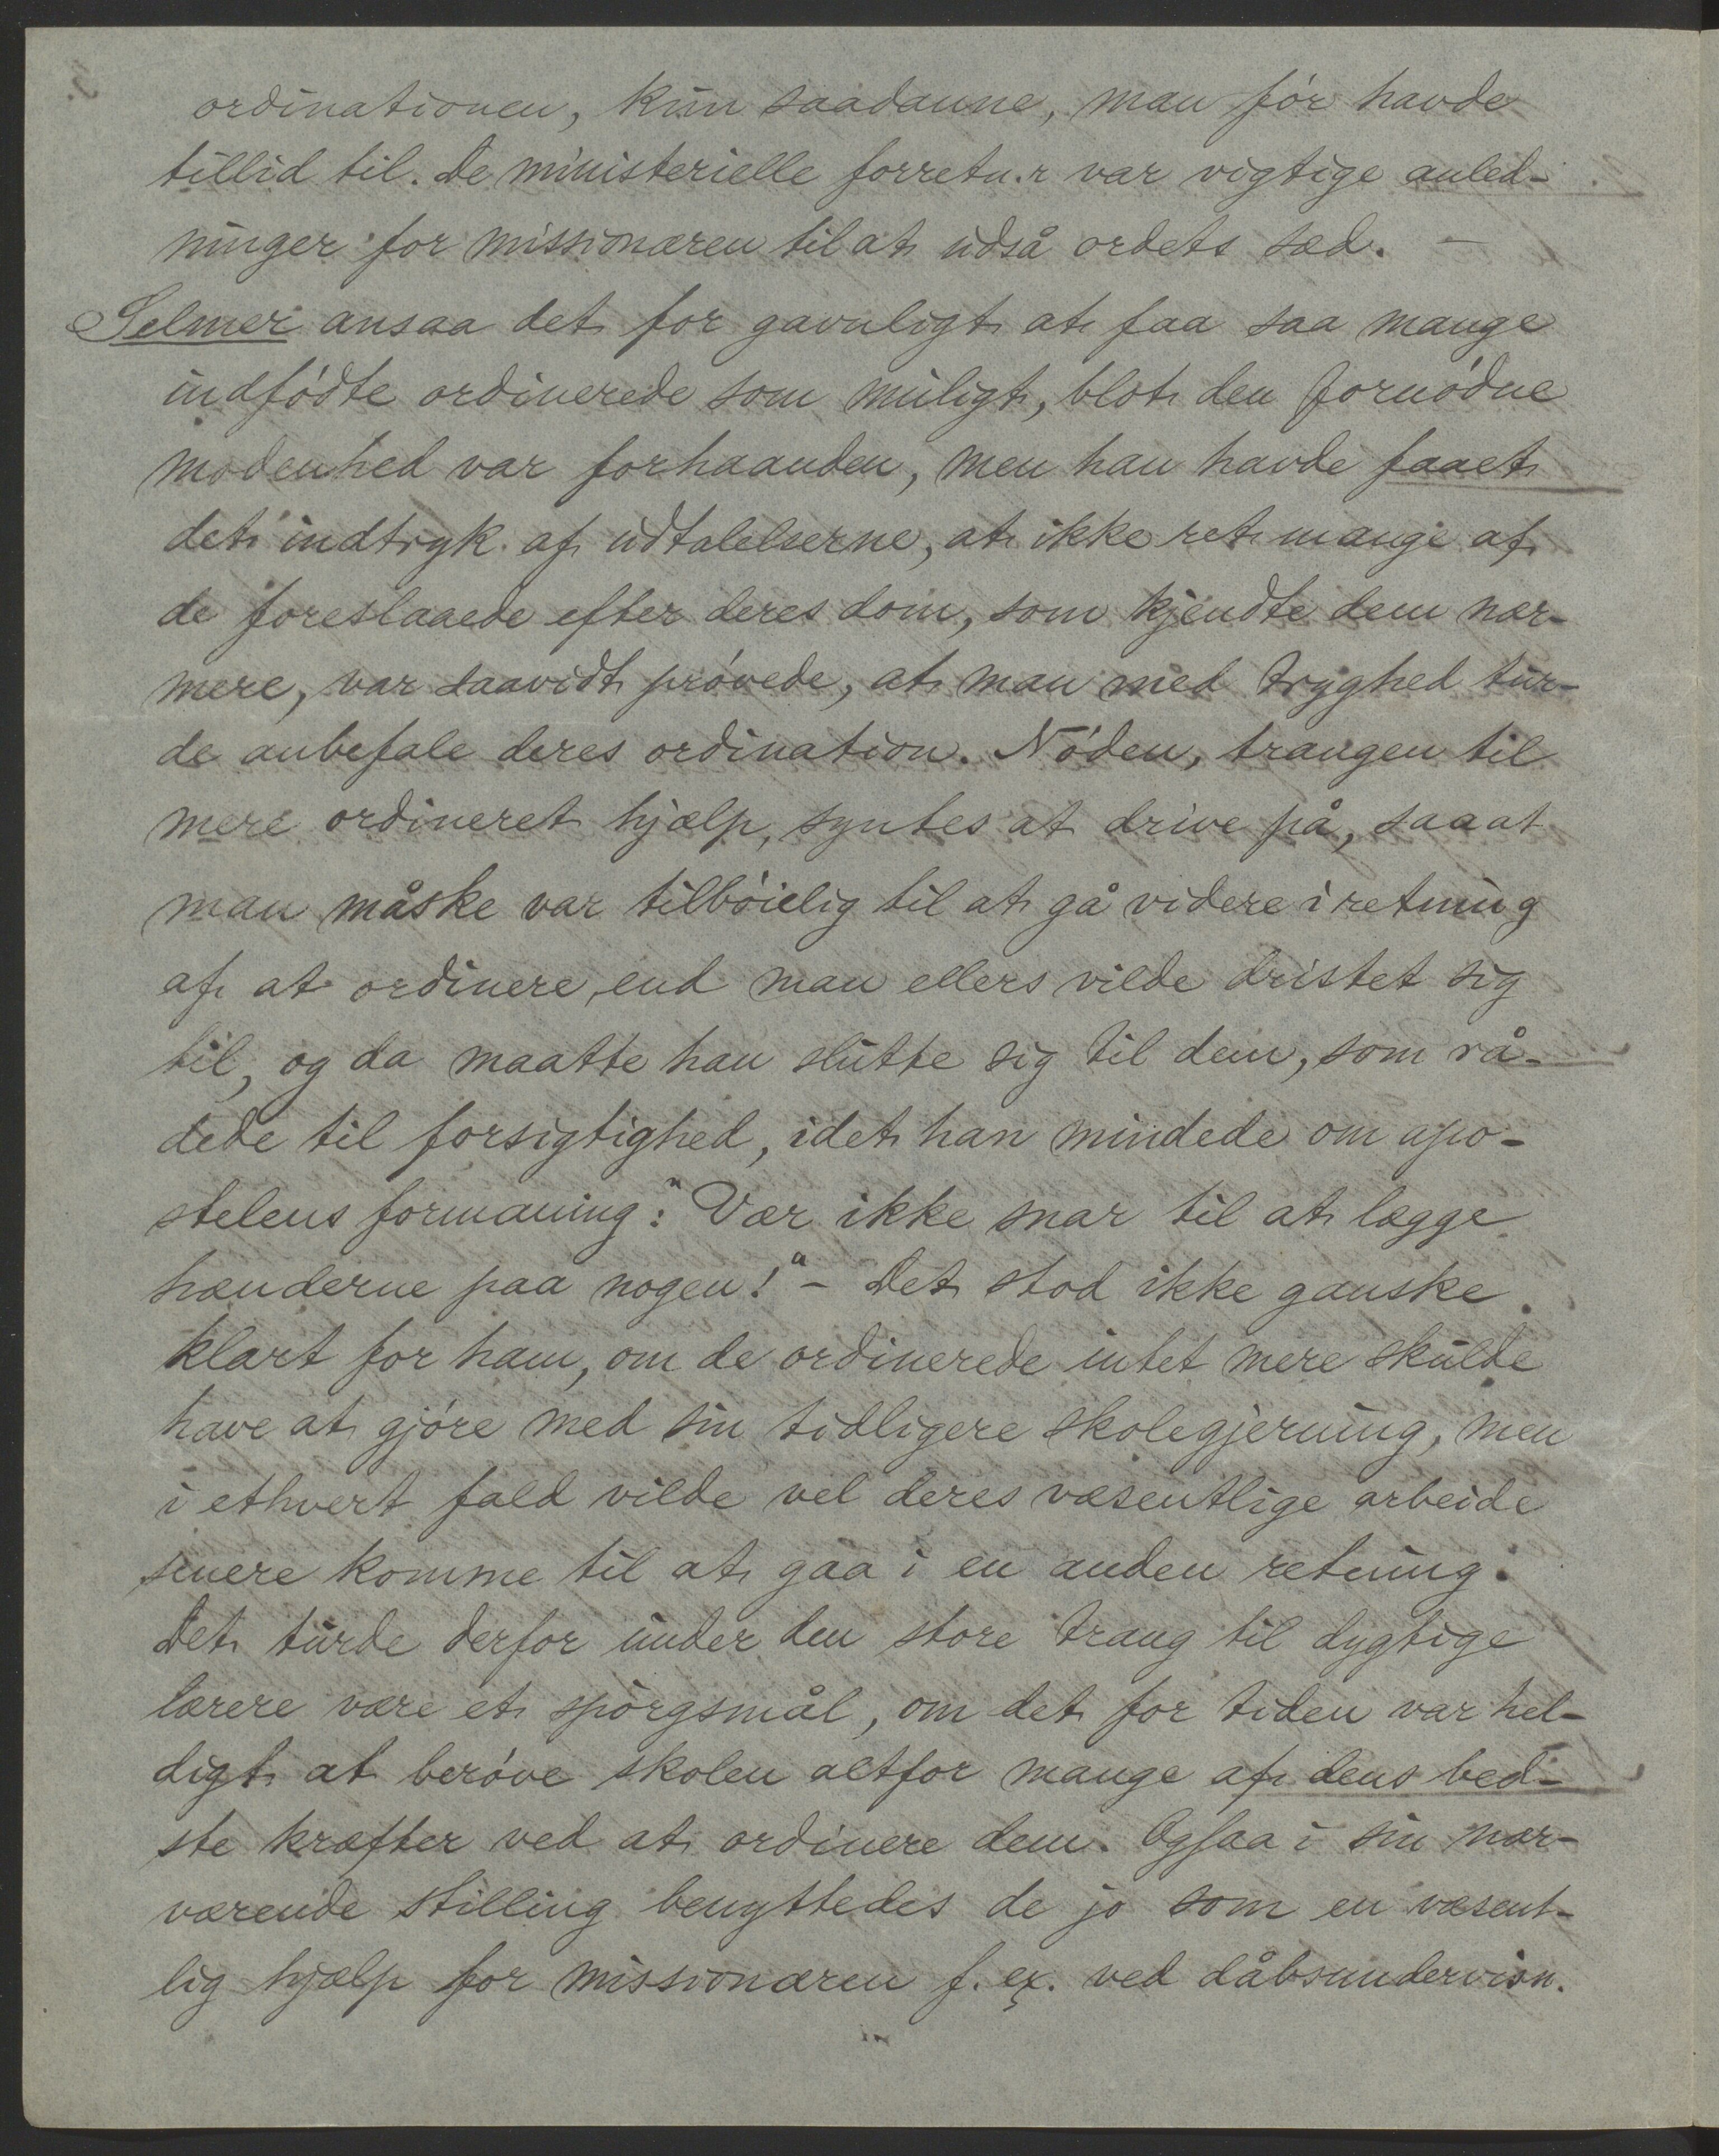 ordinationen, kun saadanne, man før havde
tillid til. De ministerielle forretn.r var vigtige anled-
ninger for missionæren til at udså ordets sæd. –
Selmer ansaa det for gavnligt at faa saa mange
indfødte ordinerede som muligt, blot den fornødne
modenhed var forhaanden, men han havde faaet
det indtryk af udtalelserne, at ikke ret mange af
de foreslaaede efter deres dom, som kjendte dem nær-
mere, var saavidt prøvede, at man med tryghed tur-
de anbefale deres ordination. Nøden, trangen til
mere ordineret hjælp, syntes at drive på, saaat
man måske var tilbøielig til at gå videre i retning
af at ordinere, end man ellers vilde dristet sig
til, og da maatte han slutte sig til dem, som rå-
dede til forsigtighed, idet han mindede om apo-
stelens formaning: "Vær ikke snar til at lægge
hænderne paa nogen!" – Det stod ikke ganske
klart for ham, om de ordinerede intet mere skulde
have at gjøre med sin tidligere skolegjerning, men
i ethvert fald vilde vel deres væsentlige arbeide
senere komme til at gaa i en anden retning.
Det turde derfor under den store trang til dygtige
lærere være et spørgsmål, om det for tiden var hel-
digt at berøve skolen altfor mange af dens bed-
ste kræfter ved at ordinere dem. Ogsaa i sin nær-
værende stilling benyttedes de jo som en væsent-
lig hjælp for missionæren f. ex. ved dåbsundervisn.